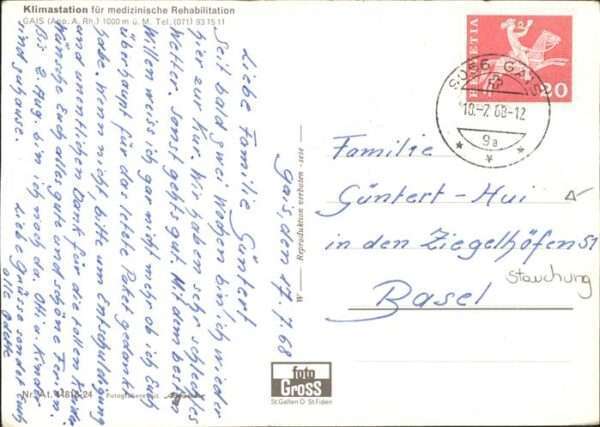 Klimastation für medizinische Rehabilitation
GAIS (App. A. Rh.) 1000 m ü. M. Tel. (071) 93 15 11
Gais, den 17.7.68
Liebe Familie Güntert
Seit bald zwei Wochen bin ich wieder
hier zur Kur. Wir haben sehr schlechtes
Wetter. Sonst gehts gut. Mit dem besten
Willen weis ich gar nicht mehr ob ich Euch
überhaupt für das letzte Paket gedankt
habe. Wenn nicht, bitte um Entschuldigung
und unentlichen Dank für die tollen Kleider.
Wünsche Euch alles gute und schöne Ferien.
Bis 2 Aug. bin ich noch da. Otti u. Kinder
sind zuhause. Liebe Grüsse sendet Euch
alle Odette
W — Reproduktion verboten
HELVETIA
20
9056 GAIS
-7.68-12
9a
Familie
Güntert-Hui
in den Ziegelhöfen 51
Basel
Stauchung
foto
Gross
St.Gallen O St.Fiden